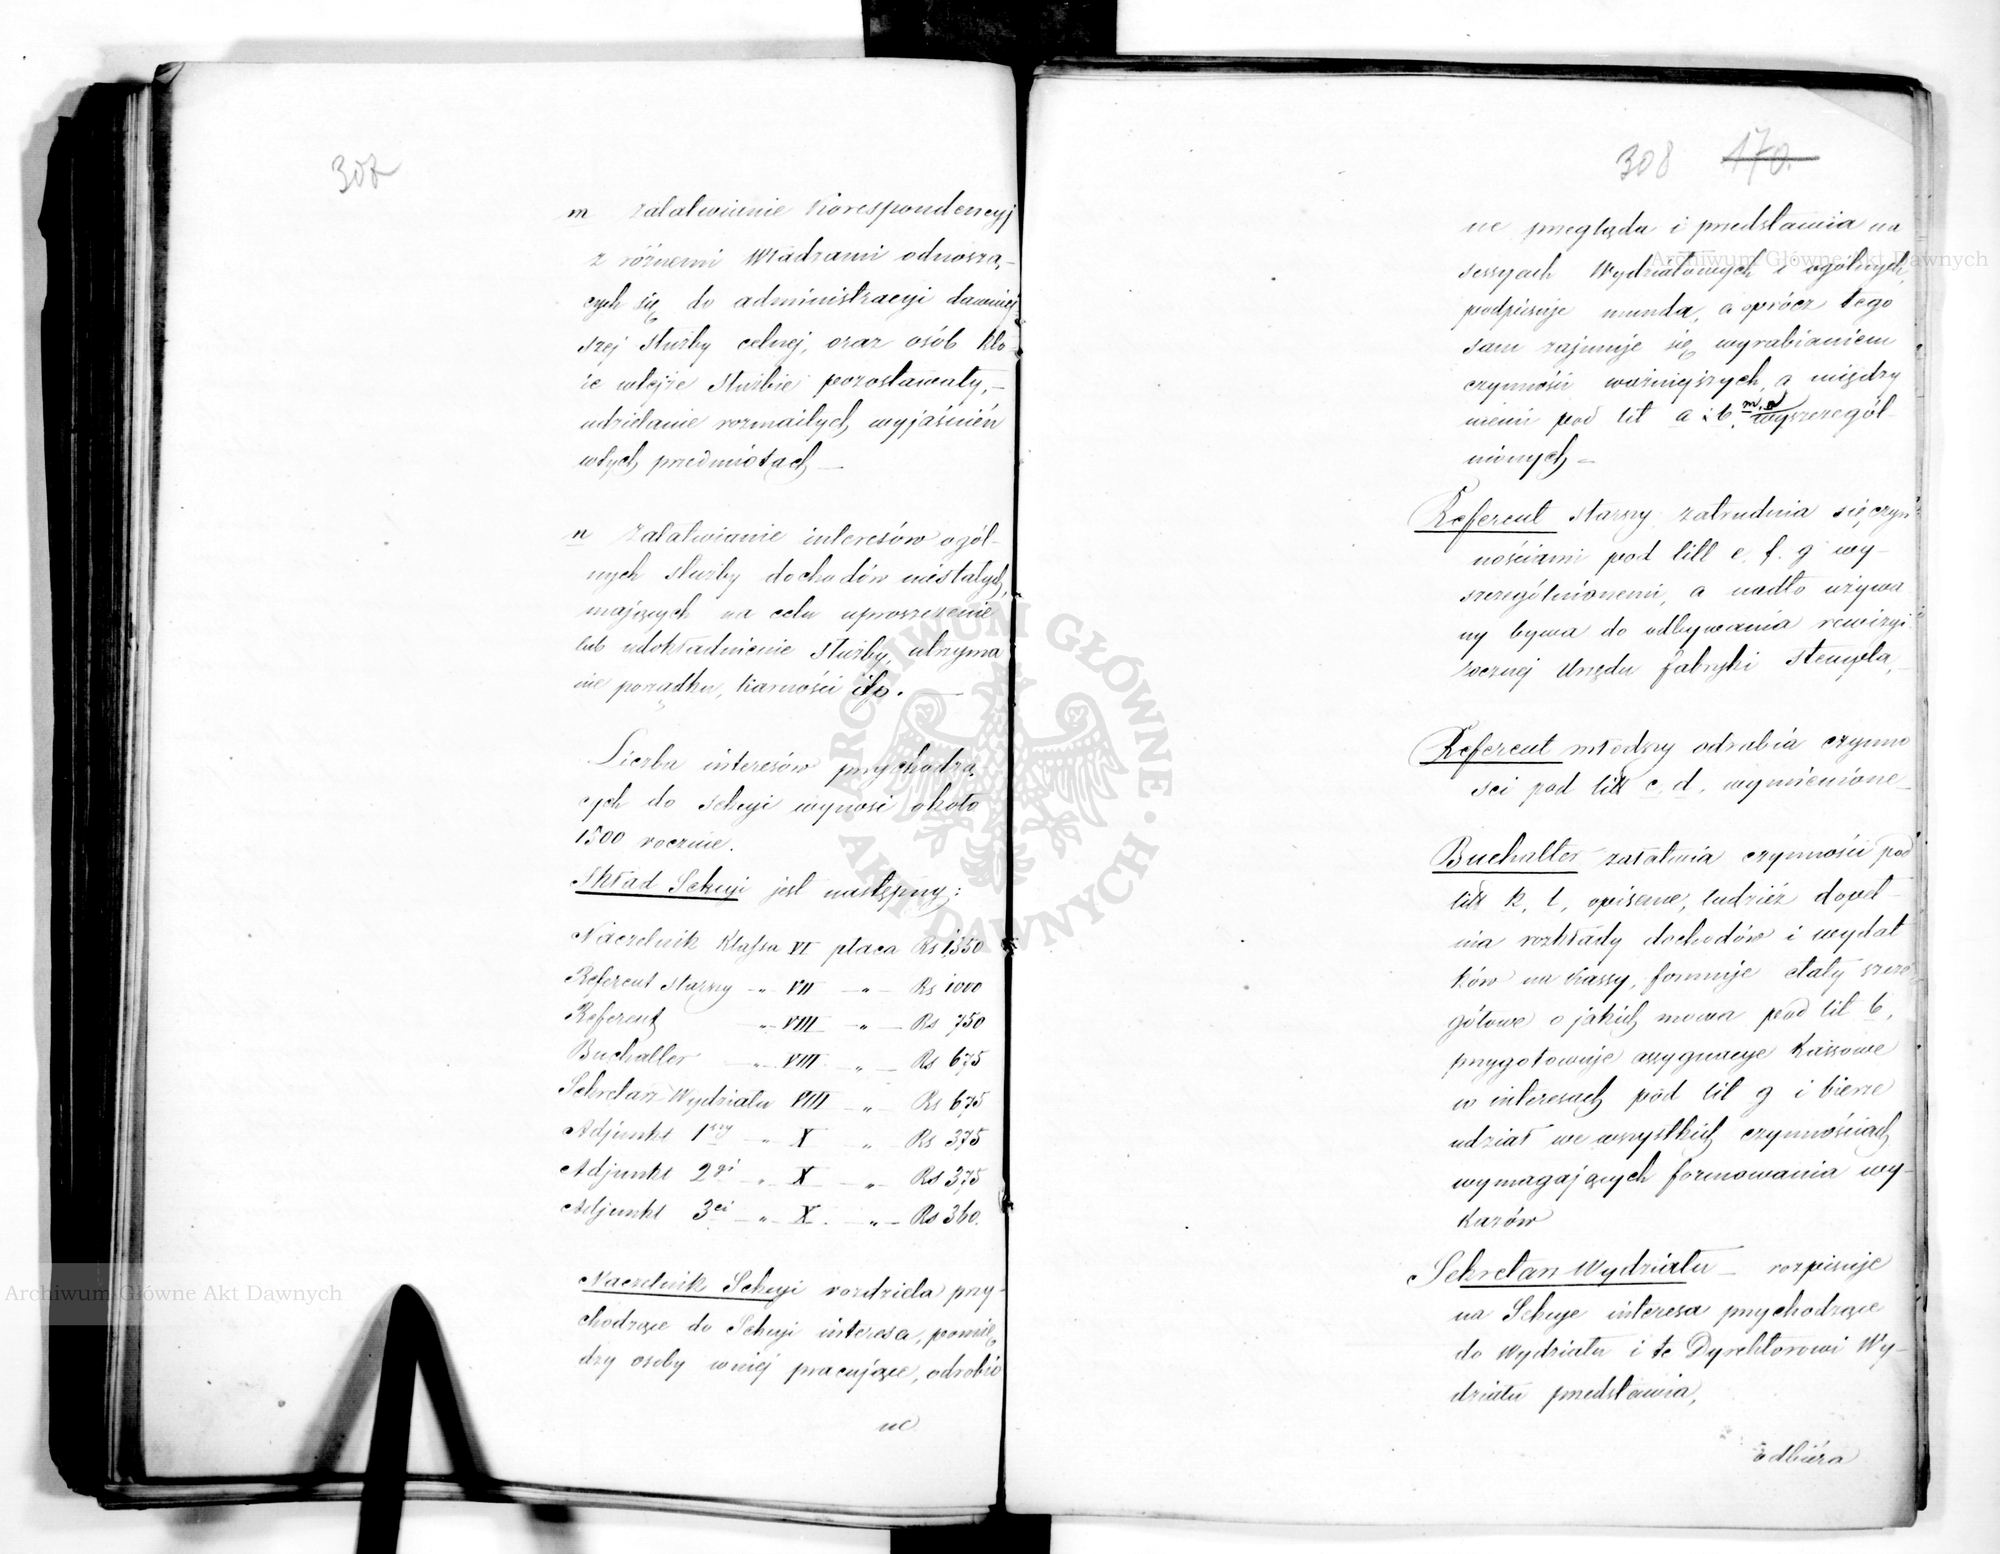 307
m załatwienie Korespondencyj
z różnemi Władzami odnoszą,-
cych się do administracyi dawniej
szej służby celnej, oraz osób któ
re wtejże służbie pozostawały,-
udzielanie rozmaitych wyjaśnień
wtych przedmiotach —
n załatwianie interesów ogól-
nych służby dochodów niestałych,
mających na celu uproszczenie
lub udokładnienie służby, utrzyma
nie porządku, karności itp. —
Liczba interesów przychodzą,
cych do sekcyi wynosi około
1500 rocznie.
Skład Sekcyi jest następny:
Naczelnik Klassa VI płaca Rs 1350
Referent starszy -„- VII -„- Rs 1000
Referent -„- VIII -„- Rs 750
Buchalter -„- VIII -„- Rs 675
Sekretarz Wydziału VIII -„- Rs 675
Adjunkt 1szy -„- X -„- Rs 375
Adjunkt 2gi -„- X -„- Rs 375
Adjunkt 3ci -„- X. -„- Rs 360.
Naczelnik Sekcyi rozdziela przy-
chodzące do Sekcyi interesa, pomię
dzy osoby wniej pracujące, odrobio
ne
308 170.
ne przegląda i przedstawia na
sessyach Wydziałowych i ogólnych,
podpisuje munda, a oprócz tego
sam zajmuje się wyrabianiem
czynności ważniejszych, a między
niemi pod lit a i b, m, n wyszczegól-
nionych —
Referent starszy zatrudnia się czyn
nościami pod litt e. f. g wy-
szczególnionemi, a nadto używa
ny bywa do odbywania rewizyi
rocznej Urzędu fabryki stempla,-
Referent młodszy odrabia czynno
ści pod litt c, d, wymienione-
Buchalter załatwia czynności pod
litt k, l, opisane, tudzież dopeł-
nia rozkłady dochodów i wydat
ków na Kassy, formuje etaty szcze
gółowe o jakich mowa pod lit b,
przygotowuje assygnacye Kassowe
w interesach pod lit g i bierze
udział we wszystkich czynnościach
wymagających formowania wy-
kazów
Sekretarz Wydziału — rozpisuje
na Sekcye interesa przychodzące
do Wydziału i te Dyrektorowi Wy-
działu przedstawia,
odbiera
Archiwum Główne Akt Dawnych
Archiwum Główne Akt Dawnych
ARCHIWUM GŁÓWNE AKT DAWNYCH